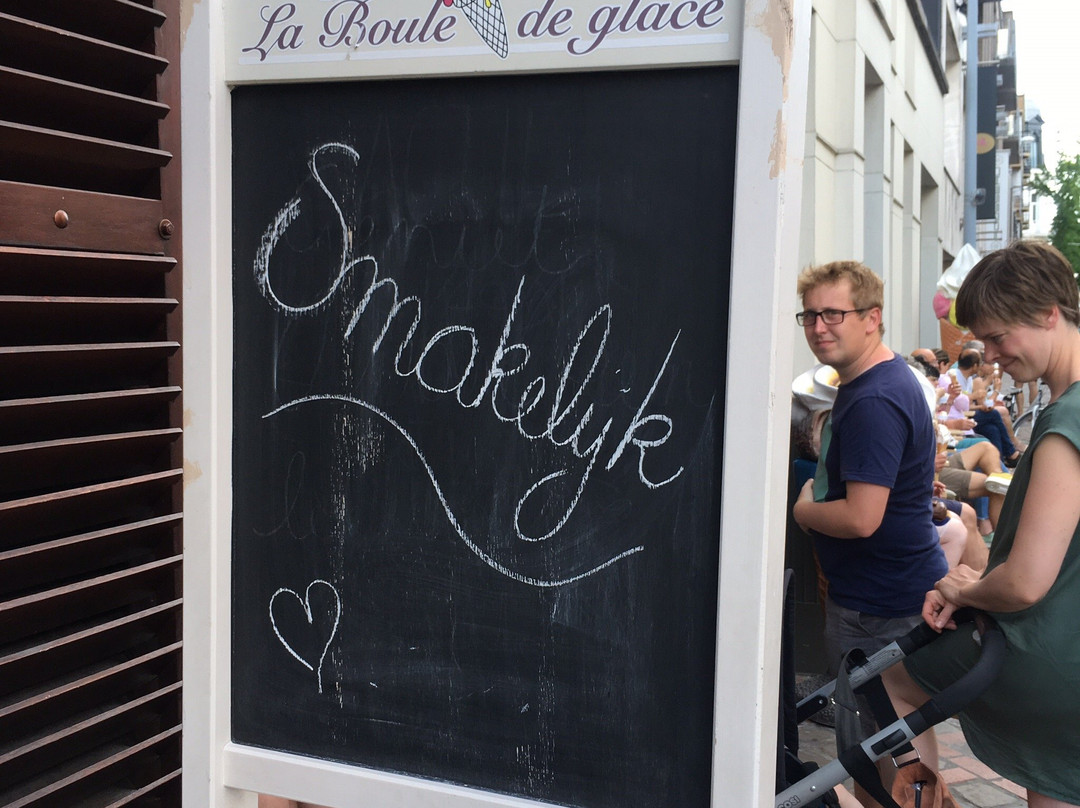 La Boule de glace
Smakelijk